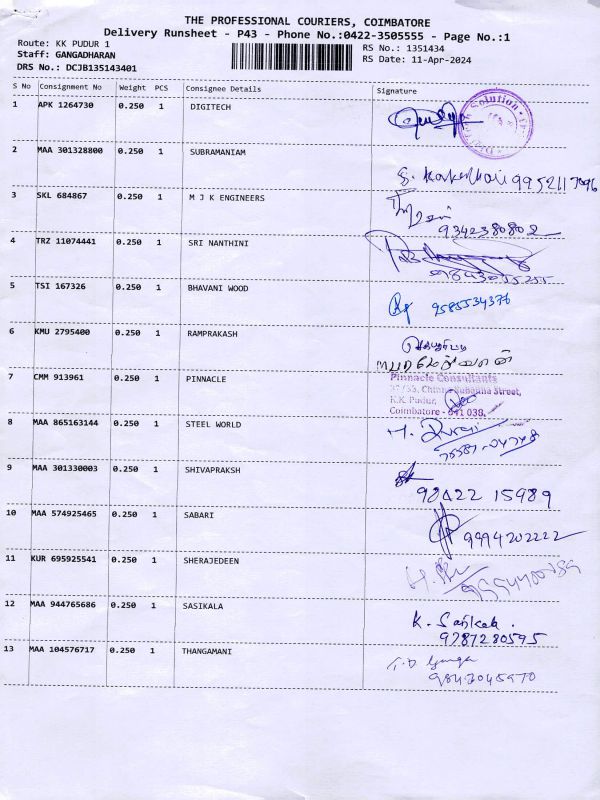 THE PROFESSIONAL COURIERS, COIMBATORE
Delivery Runsheet - P43 - Phone No.:0422-3505555 - Page No.:1
Route: KK PUDUR 1
RS No.: 1351434
Staff: GANGADHARAN
RS Date: 11-Apr-2024
DRS No.: DCJB135143401
S No Consignment No Weight PCS Consignee Details Signature
1 APK 1264730 0.250 1 DIGITECH
Solution
2 MAA 301328800 0.250 1 SUBRAMANIAM
9952117096
3 SKL 684867 0.250 1 M J K ENGINEERS
9342380802
4 TRZ 11074441 0.250 1 SRI NANTHINI
5 TSI 167326 0.250 1 BHAVANI WOOD
9585534376
6 KMU 2795400 0.250 1 RAMPRAKASH
7 CMM 913961 0.250 1 PINNACLE
Pinnacle Consultants
Street,
K.K. Pudur,
Coimbatore - 641 038.
8 MAA 865163144 0.250 1 STEEL WORLD
9 MAA 301330003 0.250 1 SHIVAPRAKSH
98422 15989
10 MAA 574925465 0.250 1 SABARI
9994202222
11 KUR 695925541 0.250 1 SHERAJEDEEN
12 MAA 944765686 0.250 1 SASIKALA
K. Sankak.
9787280595
13 MAA 104576717 0.250 1 THANGAMANI
9843045970